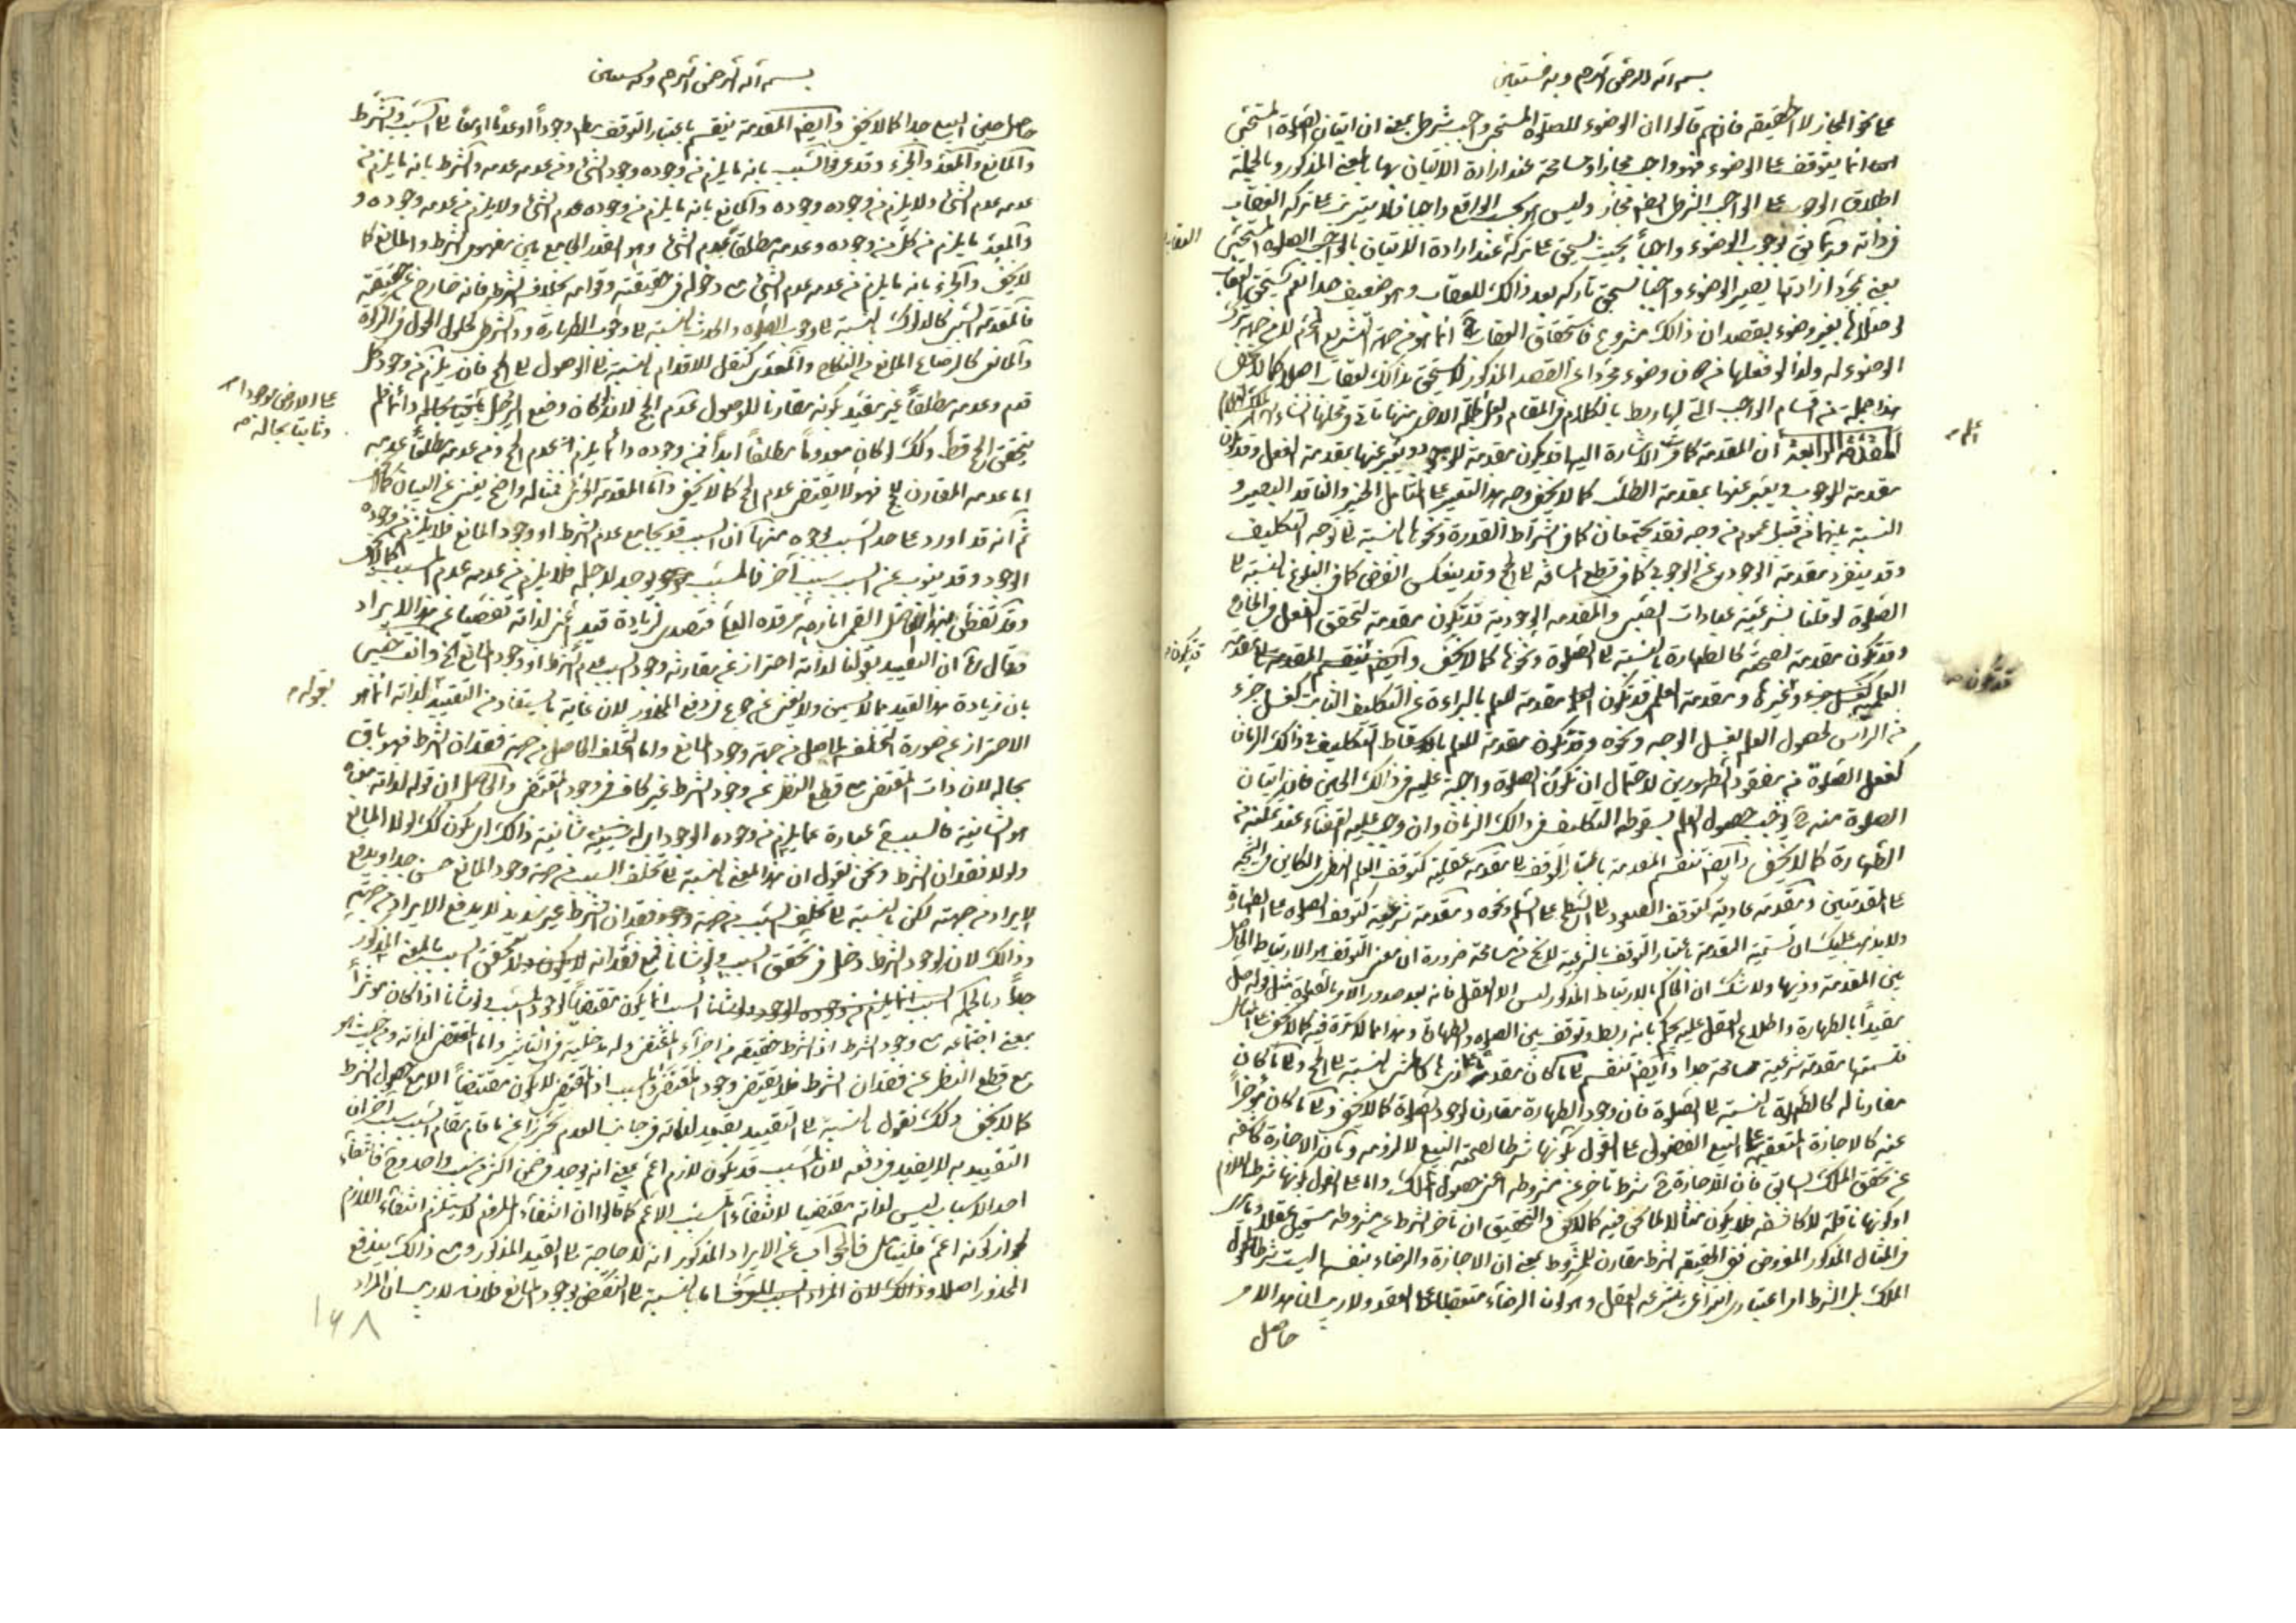 بسم الله الرحمن الرحيم وبه نستعين
على نحو المجاز لا الحقيقة فانهم قالوا ان الوضوء للصلوة المستحبة واجب شرطى بمعنى ان اتيان الصلوة المستحبى
انما يتوقف على الوضوء فهو واجب مجازا ومسامحة عند ارادة الاتيان بها بالمعنى المذكور وبالجملة
اطلاق الوجوب على الواجب الشرطى ايضا مجاز وليس هو بحسب الواقع واجبا فلا يترتب على تركه العقاب
العقاب
فى ذاته وربما بوجوب الوضوء واجبا بحيث يستحق على تركه عند ارادة الاتيان بالواجب الصلوة المستحبى
بمعنى بمجرد ارادتها يصير الوضوء واجبا يستحق تاركه بعد ذالك للعقاب وهو ضعيف جدا نعم يستحق العقاب
لو صلاها بغير وضوء بقصد ان ذالك مشروع فاستحقاق العقاب ح انما هو من جهة التشريع المحرم لا من جهة ترك
الوضوء له ولذا لو فعلها من دون وضوء مجردا عن القصد المذكور لا يستحق بذالك لعقاب اصلا كما لا يخفى
هذا جملة من اقسام الواجب التى لها ربط بالكلام فى المقام
اعلم
المقدمة الرابعة ان المقدمة كما مرت الاشارة اليها قد يكون مقدمة للوجود ويعبر عنها بمقدمة الفعل وقد يكون
مقدمة للوجوب ويعبر عنها بمقدمة الطلب كما لا يخفى وجه هذا التعبير على المتامل الخبير والناقد البصير و
النسبة بينهما من قبيل عموم من وجه فقد يجتمعان كما فى اشتراط القدرة ونحوها بالنسبة الى توجه التكليف
وقد ينفرد مقدمة الوجود عن الوجوب كما فى قطع المسافة الى الحج وقد ينعكس الفرض كما فى البلوغ بالنسبة الى
الصلوة لو قلنا بشرعية عبادات الصبى والمقدمة الوجودية قد تكون مقدمة لتحقق الفعل فى الخارج
قد تكون
وقد تكون مقدمة لصحته كالطهارة بالنسبة الى الصلوة ونحوها كما لا يخفى وايضا تنقسم المقدمة الى مقدمة
قد تكون
العلمية وغيرها ومقدمة العلم قد تكون مقدمة للعلم بالبراءة عن التكليف الثابت كغسل جزء
من الراس لحصول العلم بغسل الوجه ونحوه وقد تكون مقدمة للعلم باسقاط التكليف فى ذالك الزمان
كفعل الصلوة من مفقود الطهورين لاحتمال ان تكون الصلوة واجبة عليه فى ذالك الحين فان اتيان
الصلوة منه ح يوجب حصول العلم بسقوط التكليف فى ذالك الزمان وان وجب عليه القضاء عند تمكنه من
الطهارة كما لا يخفى وايضا تنقسم المقدمة باعتبار التوقف الى مقدمة عقلية كتوقف العلم النظرى الكاين فى النتيجة
على المقدمتين ومقدمة عادية كتوقف الصعود الى السطح على السلم ونحوه ومقدمة شرعية كتوقف الصلوة على الطهارة
ولا يذهب عليك ان تسمية المقدمة باعتبار التوقف بالشرعية لا يخ من مسامحة ضرورة ان معنى التوقف هو الارتباط الحاصل
بين المقدمة وذيها ولا شك ان الحاكم بالارتباط المذكور ليس الا العقل فانه بعد صدور الامر بالصلوة مثل قوله صل
مقيدا بالطهارة واطلاع العقل عليه يحكم بانه ربط وتوقف بين الصلوة والطهارة وهذا مما لا سترة فيه كما لا يخفى على المتامل
فتسميتها مقدمة شرعية مسامحة جدا وايضا تنقسم الى ما كان مقدما على ذيها كالمشى بالنسبة الى الحج والى ما كان
مقارنا له كالطهارة بالنسبة الى الصلوة فان وجود الطهارة مقارن لوجود الصلوة كما لا يخفى والى ما كان مؤخرا
عنه كالاجازة المتعقبة على البيع الفضولى على القول بكونها شرطا لصحة البيع لا للزومه وبان الاجازة كاشفة
عن تحقق الملك السابق فان الاجازة ح شرط تاخر عن مشروطه اعنى حصول الملك واما على القول بكونها شرطا للزوم
او كونها ناقلة لا كاشفة فلا يكون مثالا لما نحن فيه كما لا يخفى والتحقيق ان تاخر الشرط عن مشروطه مستحيل عقلا
فى المثال المذكور المفروض فى الحقيقة الشرط مقارن للمشروط بمعنى ان الاجازة والرضاء بنفسها ليست شرطا لحصول
الملك بل الشرط امر اعتبارى انتزاعى ينتزعه العقل وهو كون الرضاء متعقبا على العقد ولا ريب ان هذا الامر
حاصل
بسم الله الرحمن الرحيم وبه نستعين
حاصل حين البيع جدا كما لا يخفى وايضا المقدمة ينقسم باعتبار التوقف مطلقا وجودا او عدما الى السبب والشرط
والمانع والمعد والجزء وقد عرف السبب بانه ما يلزم من وجوده وجود الشئ ومن عدمه عدمه والشرط بانه ما يلزم من
عدمه عدم الشئ ولا يلزم من وجوده وجوده والمانع بانه ما يلزم من وجوده عدم الشئ ولا يلزم من عدمه وجوده و
والمعد ما يلزم من كل من وجوده وعدمه مطلقا عدم الشئ وهو القدر الجامع بين مفهوم الشرط والمانع كما
لا يخفى والجزء بانه ما يلزم من عدمه عدم الشئ مع دخوله فى حقيقته وقوامه بخلاف الشرط فانه خارج عن حقيقته
كالدلوك بالنسبة الى وجوب الصلوة والحدث بالنسبة الى وجوب الطهارة والشرط كحلول الحول فى الزكوة
والمانع كالرضاع المانع من النكاح والمعد كنقل الاقدام بالنسبة الى الوصول الى الحج فان يلزم من وجود كل
على الارض موجودا
وثابتا بحاله
قدم وعدمه مطلقا غير مقيد بكونه مقارنا للوصول عدم الحج لانه لو كان وضع الرجل باقيا بحاله دائما لم
يتحقق الحج قط وكذلك لو كان معدوما مطلقا ابدا فمن وجوده دائما يلزم عدم الحج ومن عدمه مطلقا عدمه
اما عدمه المقارن فهو لا يقتضى عدم الحج كما لا يخفى واما المقدمة الجزء فمثاله واضح يغنى عن البيان
ثم انه قد اورد على حد السبب بوجوه منها ان السبب قد يجامع عدم الشرط او وجود المانع فلا يلزم من وجوده
الوجود وقد ينوب عن السبب سبب آخر فالمسبب يوجد لاجله فلا يلزم من عدمه عدم المسبب كما لا يخفى
وقد تفطن الفاضل القمى انار الله مرقده فتصدى لزيادة قيد اعنى لذاته تفصيا عن هذا الايراد
فقال ره ان التقييد بقولنا لذاته احتراز عن مقارنة وجود السبب عدم الشرط او وجود المانع الخ وانت خبير
بقوله
بان زيادة هذا القيد مما لا يسمن ولا يغنى من جوع لدفع المحذور لان غاية ما يستفاد من التقييد لذاته انما هو
الاحتراز عن صورة التخلف الحاصل من جهة وجود المانع واما التخلف الحاصل من جهة فقدان الشرط فهو باق
بحاله لان ذات المقتضى مع قطع النظر عن وجود الشرط غير كاف فى وجود المقتضى والحاصل ان قوله لذاته معناه
هو الشانية فالسبب ح عبارة عما يلزم من وجوده الوجود اى له شانية ذالك اى يكون كذلك لولا المانع
ولولا فقدان الشرط ونحن نقول ان هذا المعنى بالنسبة الى تخلف السبب من جهة وجود المانع حسن جدا ويدفع
الايراد من جهته لكن بالنسبة الى تخلف السبب من جهة فقدان الشرط غير سديد لا يدفع الايراد من جهته
وذالك لان لوجود الشرط دخل فى تحقق السبب ولو شانا فمع فقدانه لا يتحقق السبب بالمعنى المذكور
جدا وبالجملة السبب انما يكون مقتضيا لوجود المسبب ولو شانا اذا كان مؤثرا
بمعنى اجتماعه مع وجود الشرط اذ الشرط حقيقة من اجزاء المقتضى وله مدخلية فى التاثير واما المقتضى لذاته ومن حيث هو
مع قطع النظر عن فقدان الشرط فلا يقتضى وجود المسبب اذ المقتضى لا يكون مقتضيا الا مع حصول الشرط
كما لا يخفى وكذلك نقول بالنسبة الى التقييد بقيد لذاته فى جانب العدم تحرزا عن ما قام مقام السبب سبب آخر ان
التقييد به لا يفيد فى دفعه لان المسبب قد يكون لازم اعم بمعنى انه يوجد فى ضمن اكثر من سبب واحد وح فانتفاء
احد الاسباب ليس لذاته مقتضيا لانتفاء المسبب الاعم كما قالوا ان انتفاء الملزوم لا يستلزم انتفاء اللازم
لجواز كونه اعم فليتامل فالجواب عن الايراد المذكور انه لا حاجة الى القيد المذكور ومع ذالك يندفع
المحذور اصلا وذالك لان المراد اما بالنسبة الى النقض بوجود المانع فلانه لا ريب ان المراد
١٦٨